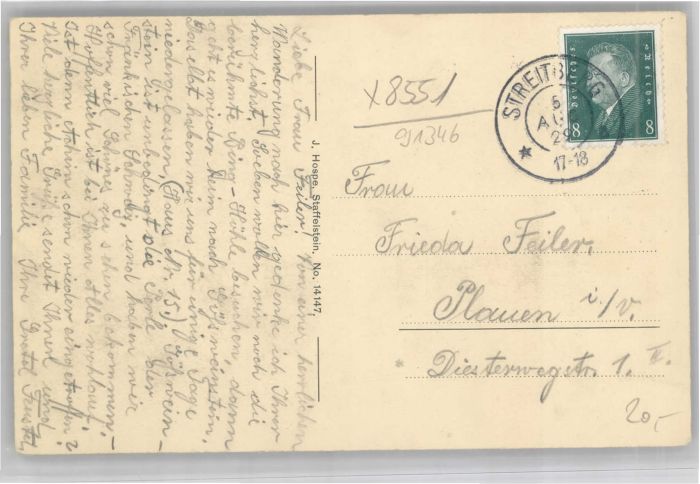 Liebe Frau Feiler! Von einer herrlichen
Wanderung nach hier gedenke ich Ihrer
herzlichst. Soeben wollen wir noch die
berühmte Bing-Höhle besuchen, dann
geht es wieder heim nach Gößweinstein.
Daselbst haben wir uns für einige Tage
niedergelassen, (Haus Nr. 15.) Gößwein-
stein ist unbedingt die Perle der
Fränkischen Schweiz, und haben wir
schon viel Schönes zu sehn bekommen.
Hoffentlich ist bei Ihnen alles wohlauf.
Ist denn schon wieder eingetroffen?
Viele herzliche Grüße sendet Ihnen und
Ihrer lieben Familie Ihre Gretel
J. Hospe, Staffelstein, No. 14147.
x8551
91346
STREITBERG
5
AUG
29
17-18
Deutsches Reich
8 8
Frau
Frieda Feiler.
Plauen i/V.
Diesterwegstr. 1. II.
20,-